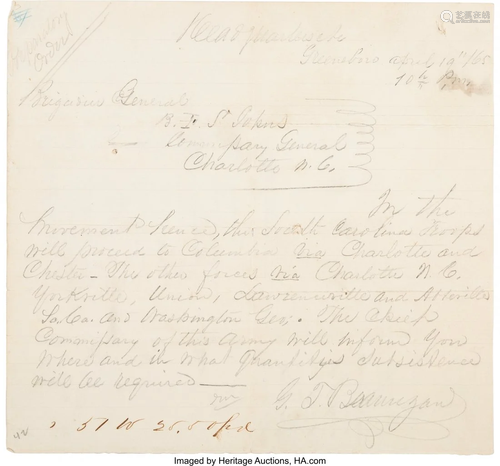 Head Quarters
Greensboro April 19th /65
10th Pm
Brigadier General
St Johns
Commissary General
Charlotte N.C.
In the
Movement hence, the South Carolina troops
will proceed to Columbia Via Charlotte and
Chester - The other forces Via Charlotte N.C.
Yorkville, Union, and Abbeville
So.Ca. and Washington Geo. The Chief
Commissary of this Army will inform you
where and in what quantities subsistence
will be required —
G. T. Beauregard
Imaged by Heritage Auctions, HA.com